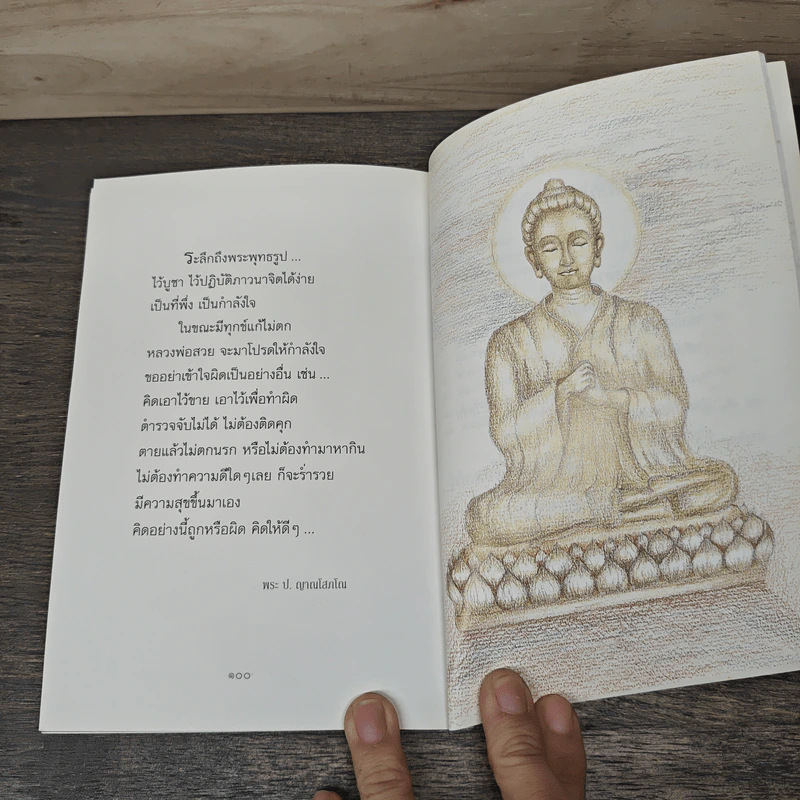 ระลึกถึงพระพุทธรูป ...
ไว้บูชา ไว้ปฏิบัติภาวนาจิตได้ง่าย
เป็นที่พึ่ง เป็นกำลังใจ
ในขณะมีทุกข์แก้ไม่ตก
หลวงพ่อสวย จะมาโปรดให้กำลังใจ
ขออย่าเข้าใจผิดเป็นอย่างอื่น เช่น ...
คิดเอาไว้ขาย เอาไว้เพื่อทำผิด
ตำรวจจับไม่ได้ ไม่ต้องติดคุก
ตายแล้วไม่ตกนรก หรือไม่ต้องทำมาหากิน
ไม่ต้องทำความดีใดๆเลย ก็จะร่ำรวย
มีความสุขขึ้นมาเอง
คิดอย่างนี้ถูกหรือผิด คิดให้ดีๆ ...
พระ ป. ญาณโสภโณ
๑๐๐